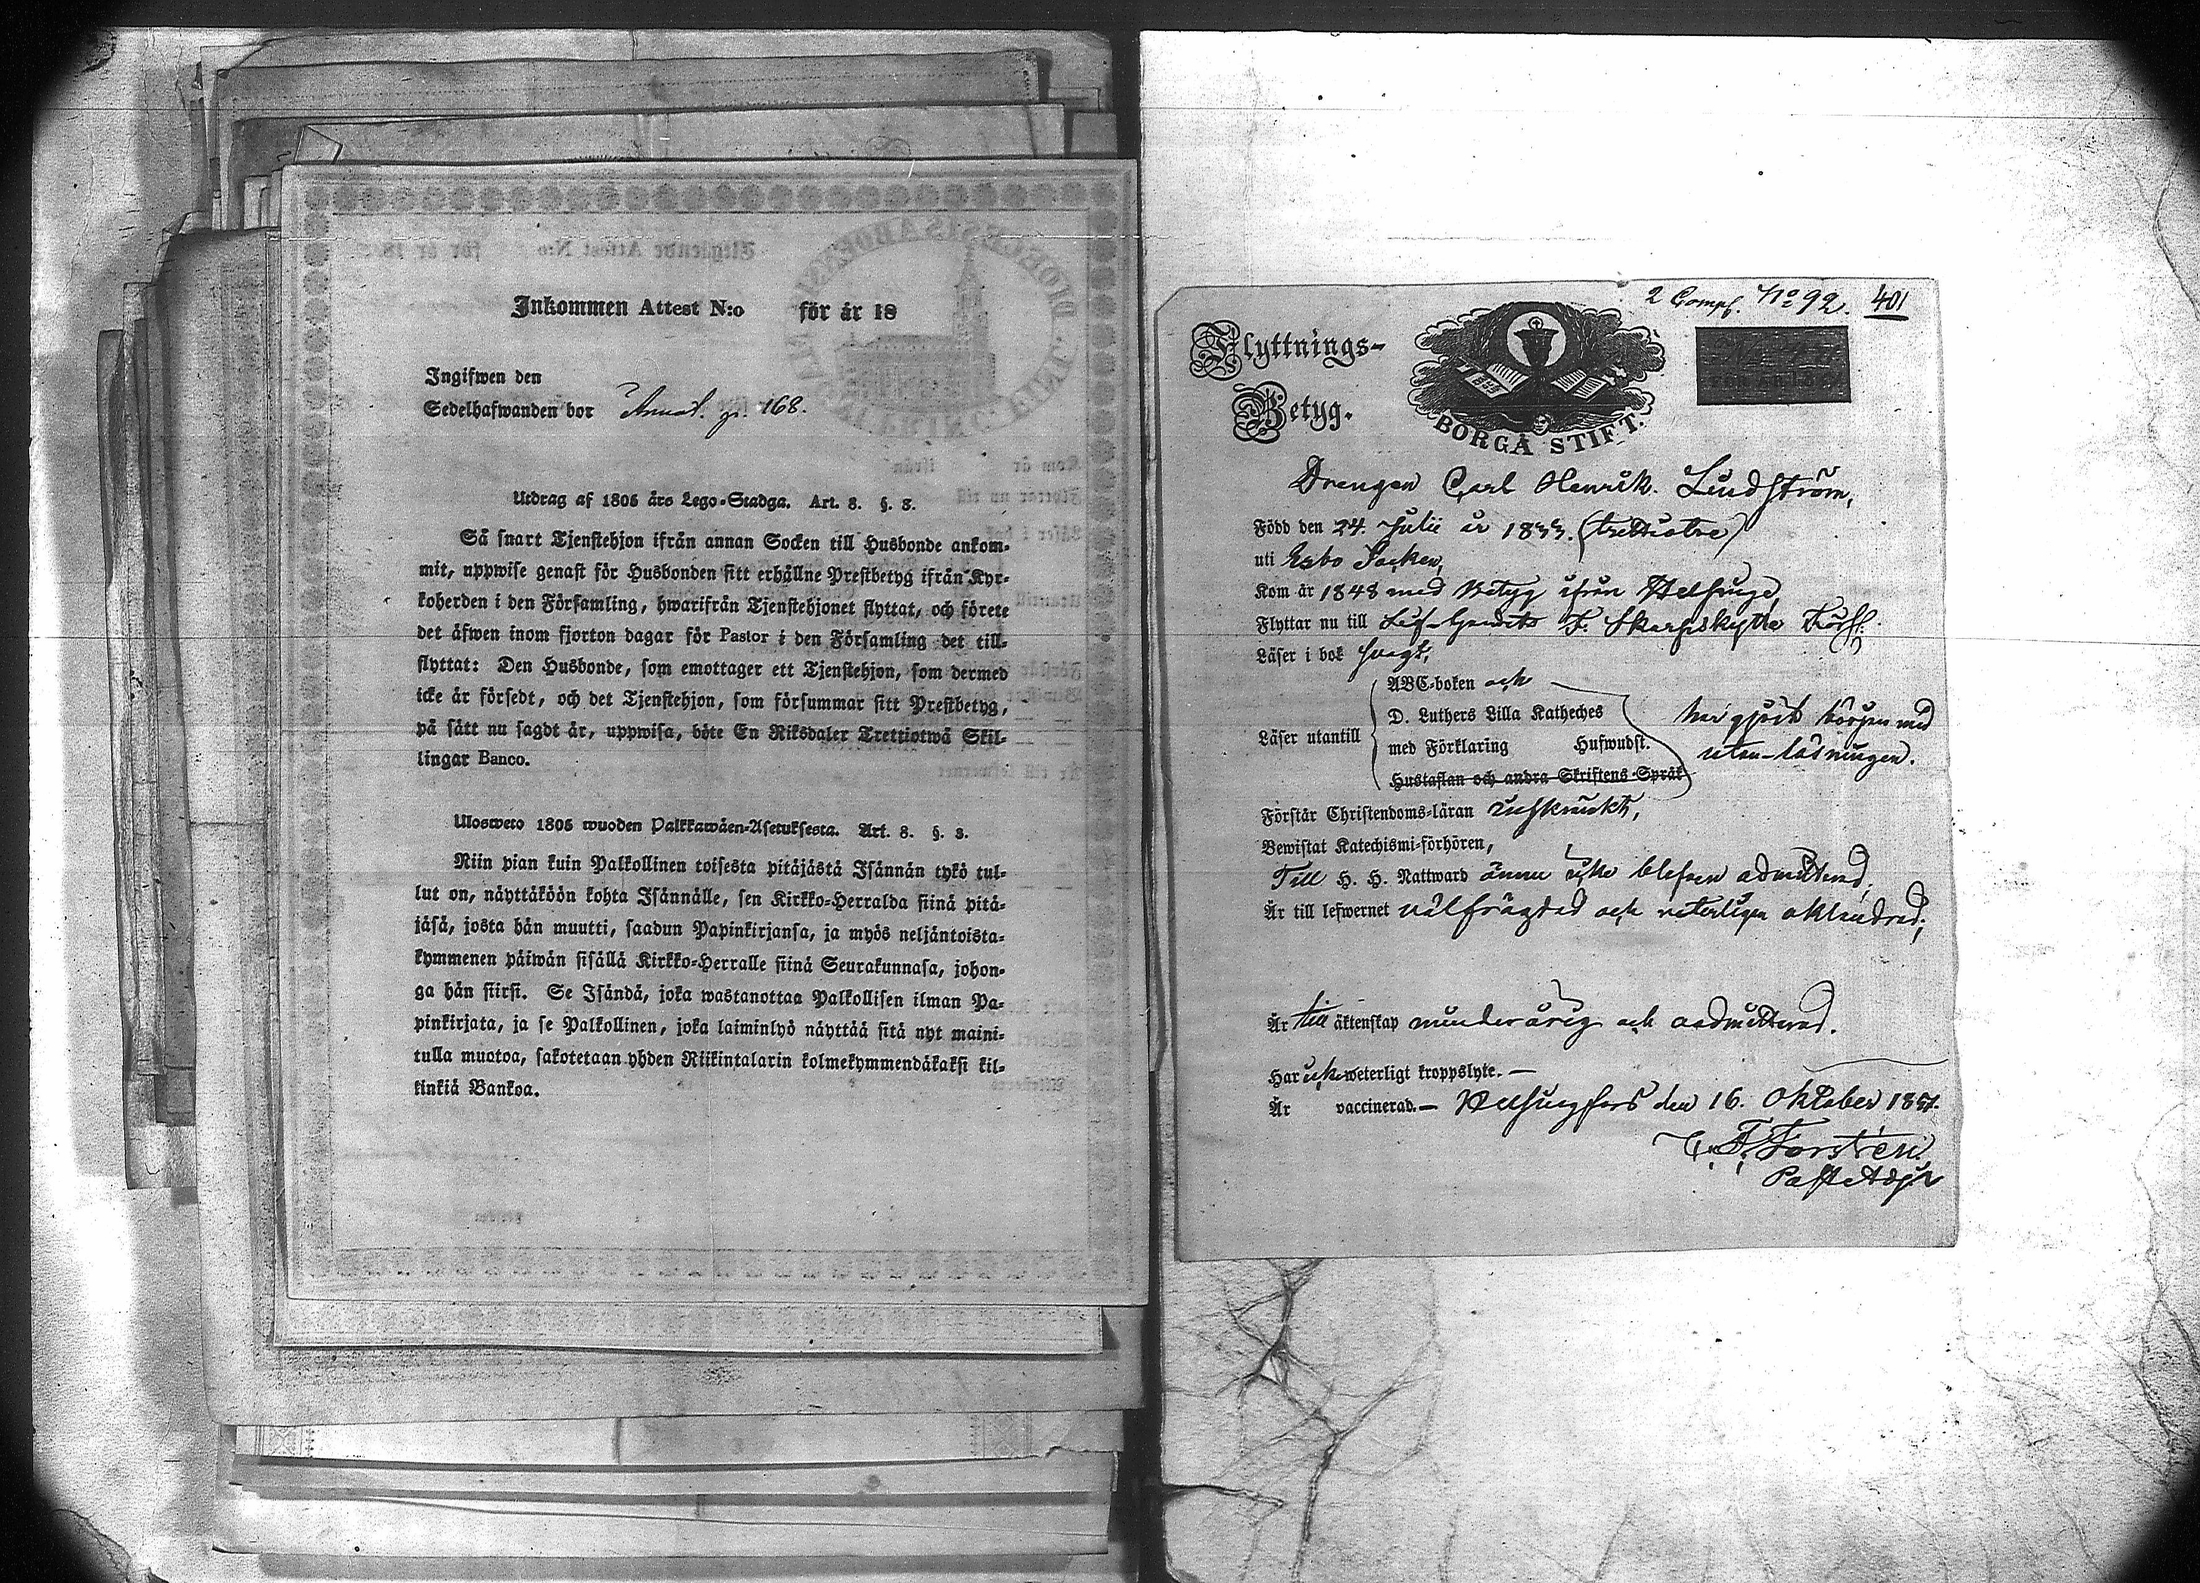 Inkommen Attest N:o för år 18
Ingifwen den
Sedelhafwanden bor Annot. p. 168.
Utdrag af 1805 års Lego-Stadga. Art. 8. §. 3.
Så snart Tjenstehjon ifrån annan Socken till Husbonde ankom-
mit, uppwise genast för Husbonden sitt erhållne Prestbetyg ifrån Kyr-
koherden i den Församling, hwarifrån Tjenstehjonet flyttat, och förete
det äfwen inom fjorton dagar för Pastor i den Församling det till-
flyttat: Den Husbonde, som emottager ett Tjenstehjon, som dermed
icke är försedt, och det Tjenstehjon, som försummar sitt Prestbetyg,
på sätt nu sagdt är, uppwisa, böte En Riksdaler Trettiotwå Skil-
lingar Banco.
Ulosweto 1805 wuoden Palkkawäen-Asetuksesta. Art. 8. §. 3.
Niin pian kuin Palkollinen toisesta pitäjästä Isännän tykö tul-
lut on, näyttäköön kohta Isännälle, sen Kirkko-Herralda siinä pitä-
jäsä, josta hän muutti, saadun Papinkirjansa, ja myös neljäntoista-
kymmenen päiwän sisällä Kirkko-Herralle siinä Seurakunnasa, johon-
ga hän siirsi. Se Isändä, joka wastanottaa Palkollisen ilman Pa-
pinkirjata, ja se Palkollinen, joka laiminlyö näyttää sitä nyt maini-
tulla muotoa, sakotetaan yhden Riikintalarin kolmekymmendäkaksi kil-
linkiä Bankoa.
2 Comp. No 92. 401
Flyttnings-
Betyg.
BORGÅ STIFT.
Drengen Carl Henrik Lindström,
Född den 24. Julii år 1833. (trettiotre)
uti Esbo Socken,
Kom år 1848 med Betyg ifrån Helsinge,
Flyttar nu till Lif-Gardets F. Skarpskytte Förs.
Läser i bok svagt,
ABC-boken och
D. Luthers Lilla Katheches
Läser utantill med Förklaring Hufwudst.
Hustaflan och andra Skriftens Språk
har gjort början med
utanläsningen.
Förstår Christendoms-läran
Bewistat Katechismi-förhören,
Till H. H. Nattward ännu icke blefven admitterad,
Är till lefwernet välfrägdad och veterligen oklandrad;
Är till äktenskap minderårig och oadmitterad.
Har icke weterligt kroppslyte.—
Är vaccinerad.— Helsingfors den 16. Oktober 1851.
F. Forstén
Past. Adj.